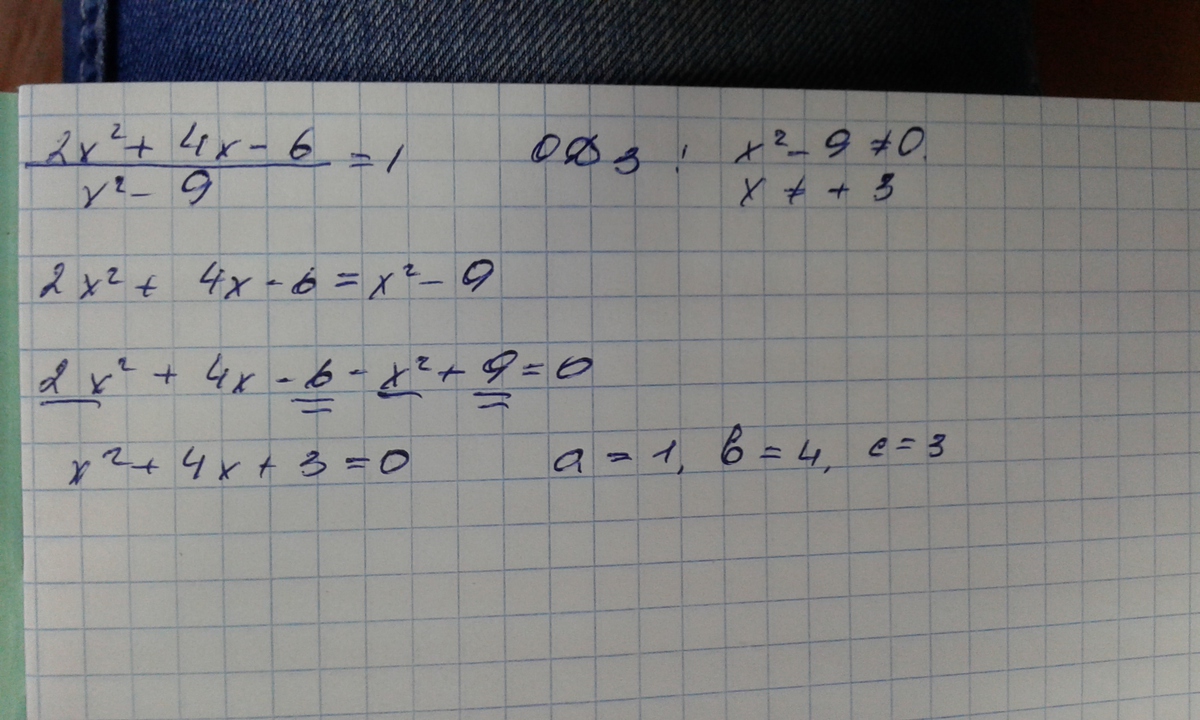 2x² + 4x - 6 / x² - 9 = 1 ОДЗ : x² - 9 ≠ 0.
x ≠ + 3
2x² + 4x - 6 = x² - 9
2x² + 4x - 6 - x² + 9 = 0
x² + 4x + 3 = 0 a = 1, b = 4, c = 3